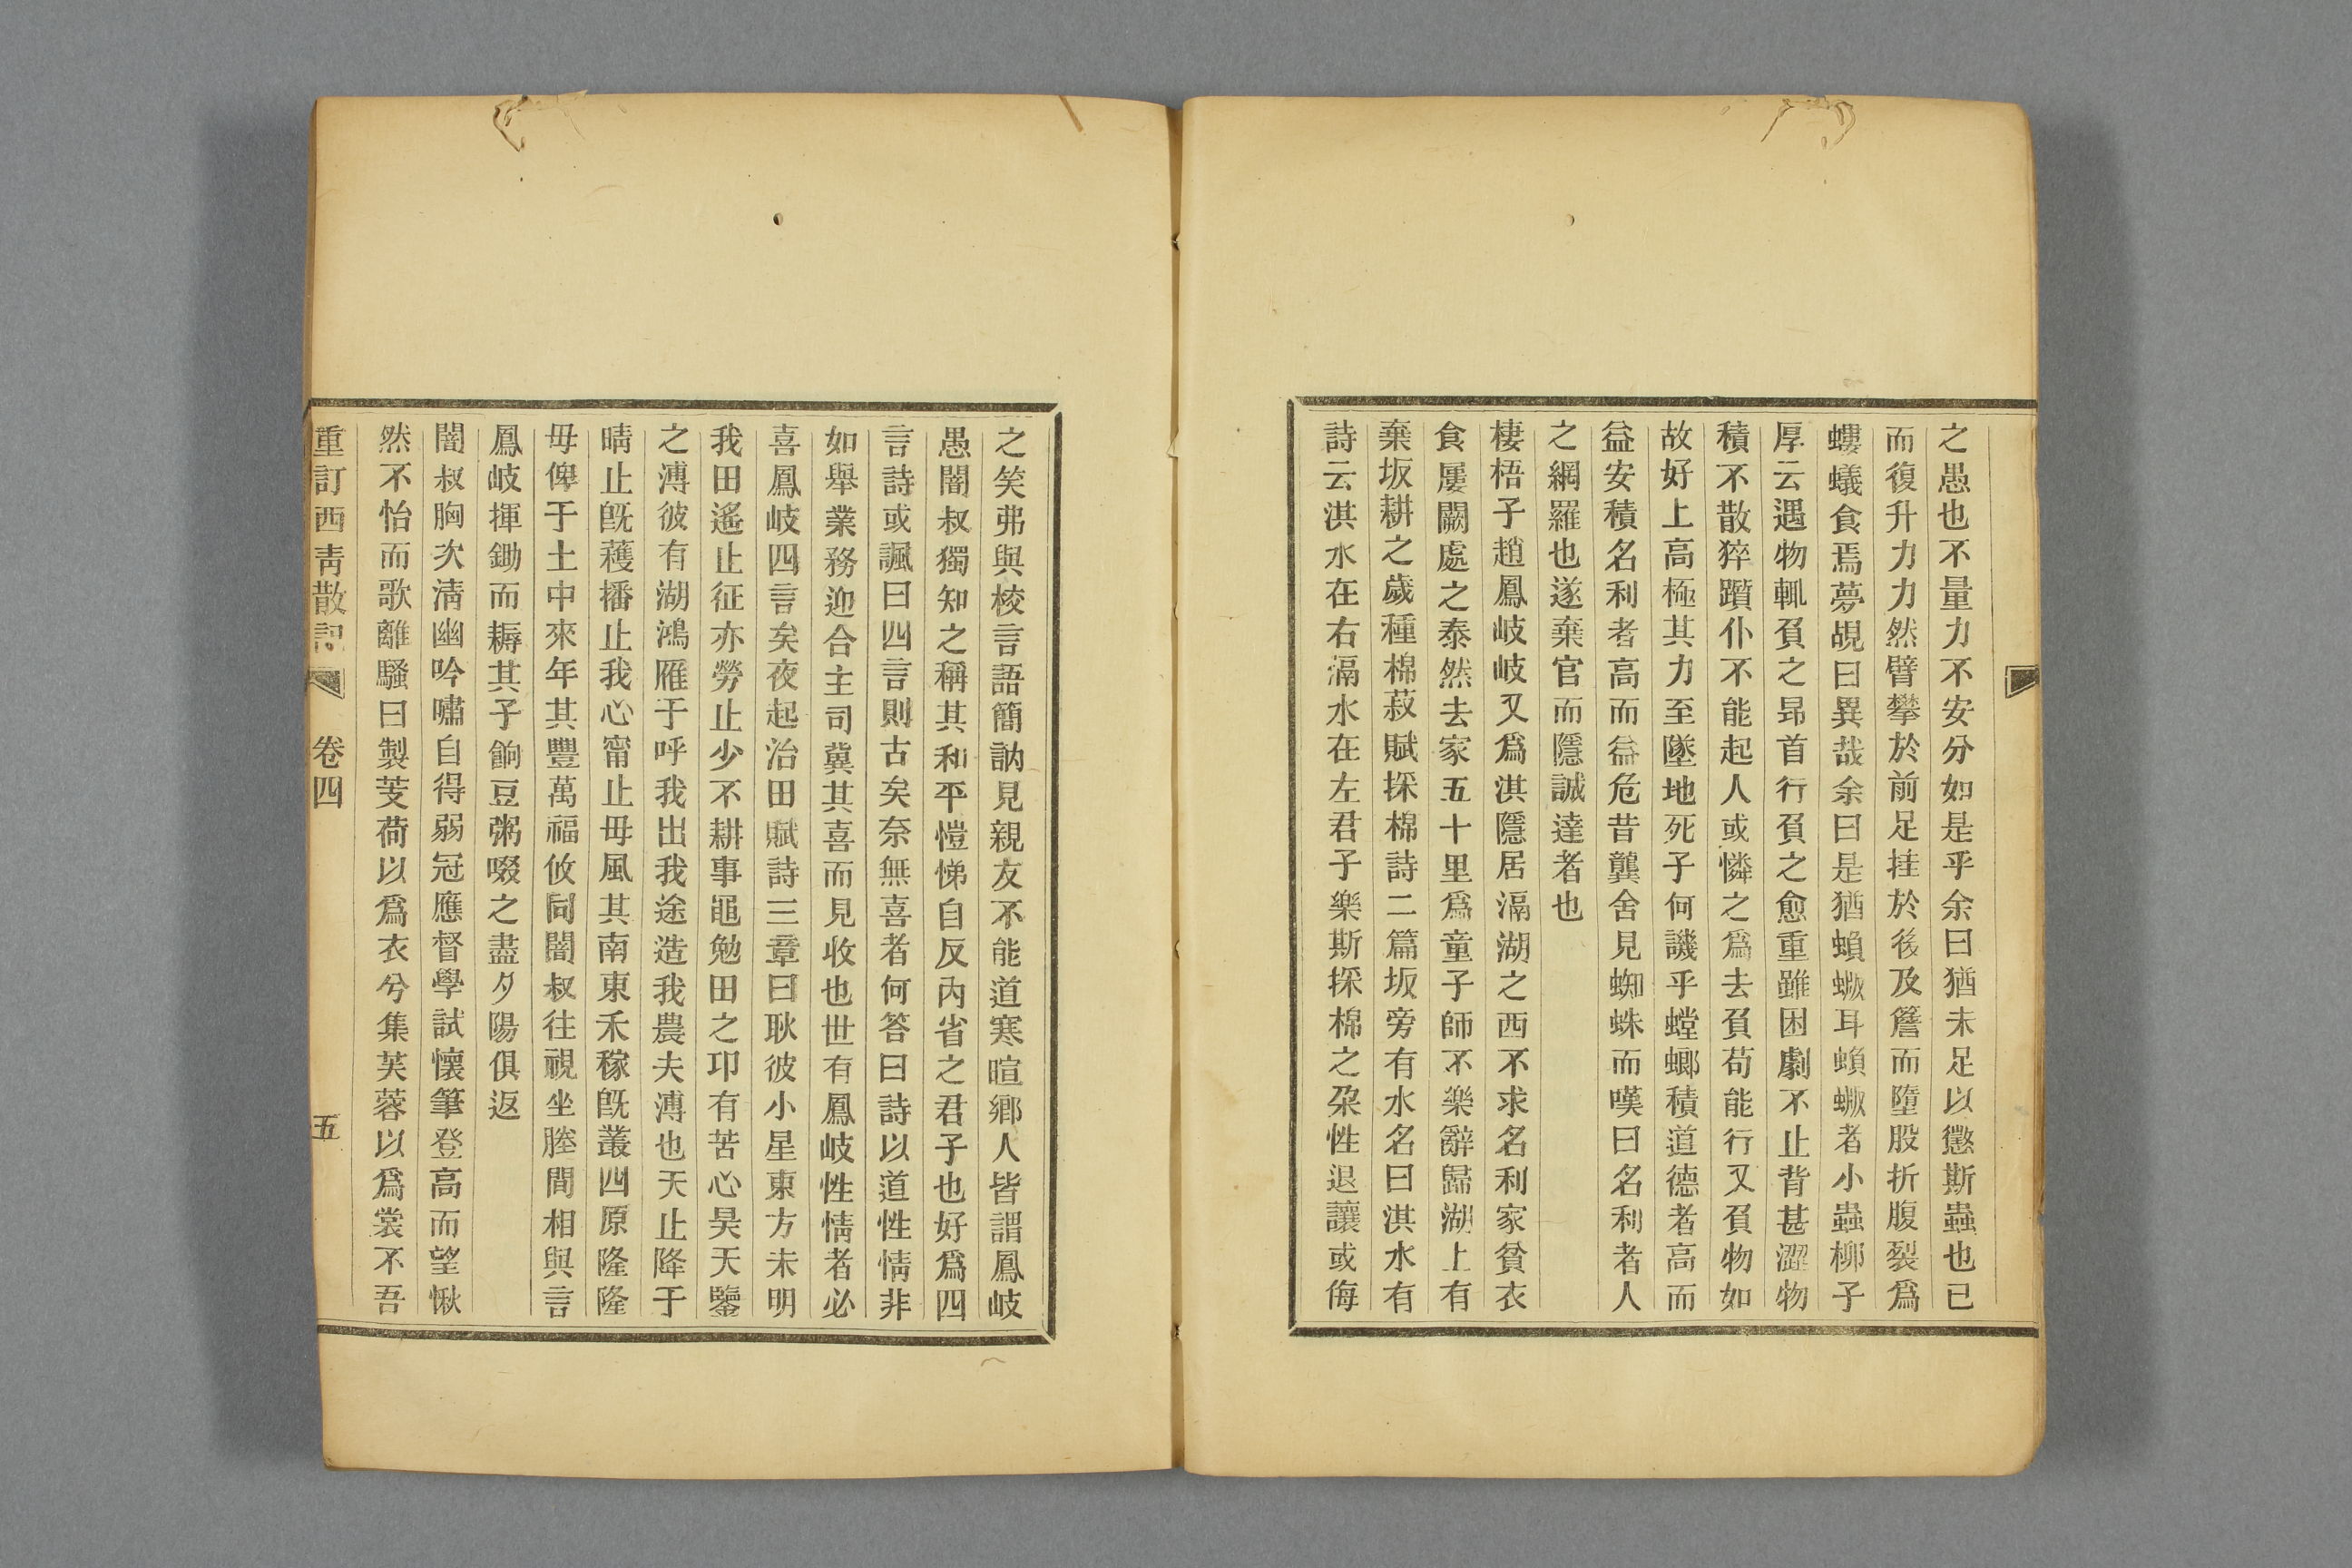 之愚也不量力不安分如是乎余曰猶未足以懲斯蟲也已
而復升力力然臂攀於前足挂於後及簷而墮股折腹裂爲
螻蟻食焉夢覘曰異哉余曰是猶蝜蝂耳蝜蝂者小蟲柳子
厚云遇物輒負之昂首行負之愈重雖困劇不止背甚澀物
積不散猝躓仆不能起人或憐之爲去負苟能行又負物如
故好上高極其力至墜地死子何譏乎螳螂積道德者高而
益安積名利者高而益危昔龔舍見蜘蛛而嘆曰名利者人
之網羅也遂棄官而隱誠達者也
棲梧子趙鳳岐岐又爲淇隱居滆湖之西不求名利家貧衣
食屢闕處之泰然去家五十里爲童子師不樂辭歸湖上有
棄坂耕之歲種棉菽賦採棉詩二篇坂旁有水名曰淇水有
詩云淇水在右滆水在左君子樂斯採棉之朶性退讓或侮
之笑弗與校言語簡訥見親友不能道寒暄鄉人皆謂鳳岐
愚闇叔獨知之稱其和平愷悌自反内省之君子也好爲四
言詩或諷曰四言則古矣奈無喜者何答曰詩以道性情非
如舉業務迎合主司冀其喜而見收也世有鳳岐性情者必
喜鳳岐四言矣夜起治田賦詩三章曰耿彼小星東方未明
我田遙止征亦勞止少不耕事黽勉田之卬有苦心昊天鑒
之溥彼有湖鴻雁于呼我出我途造我農夫溥也天止降于
晴止旣穫播止我心甯止毋風其南東禾稼旣叢四原隆隆
毋俾于土中來年其豐萬福攸同闇叔往視坐塍間相與言
鳳岐揮鋤而耨其子餉豆粥啜之盡夕陽俱返
闇叔胸次淸幽吟嘯自得弱冠應督學試懷筆登高而望愀
然不怡而歌離騷曰製芰荷以爲衣兮集芙蓉以爲裳不吾
重訂西靑散記 卷四 五